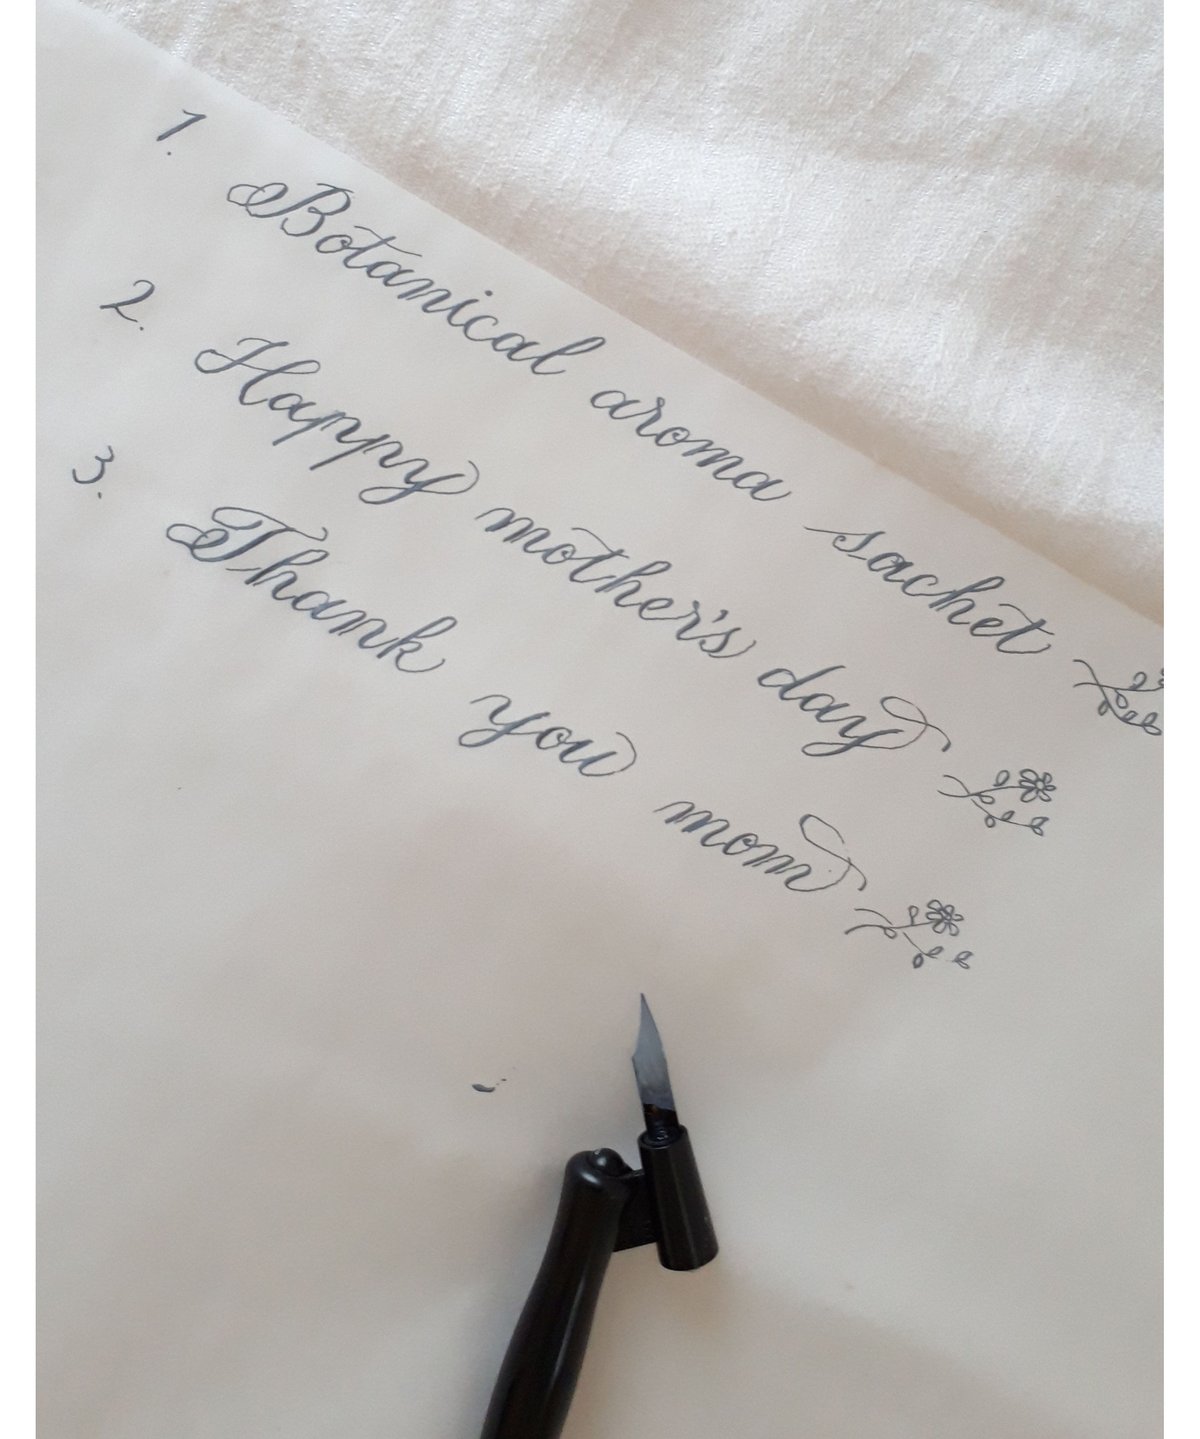 1. Botanical aroma sachet
2. Happy mother's day
3. Thank you mom